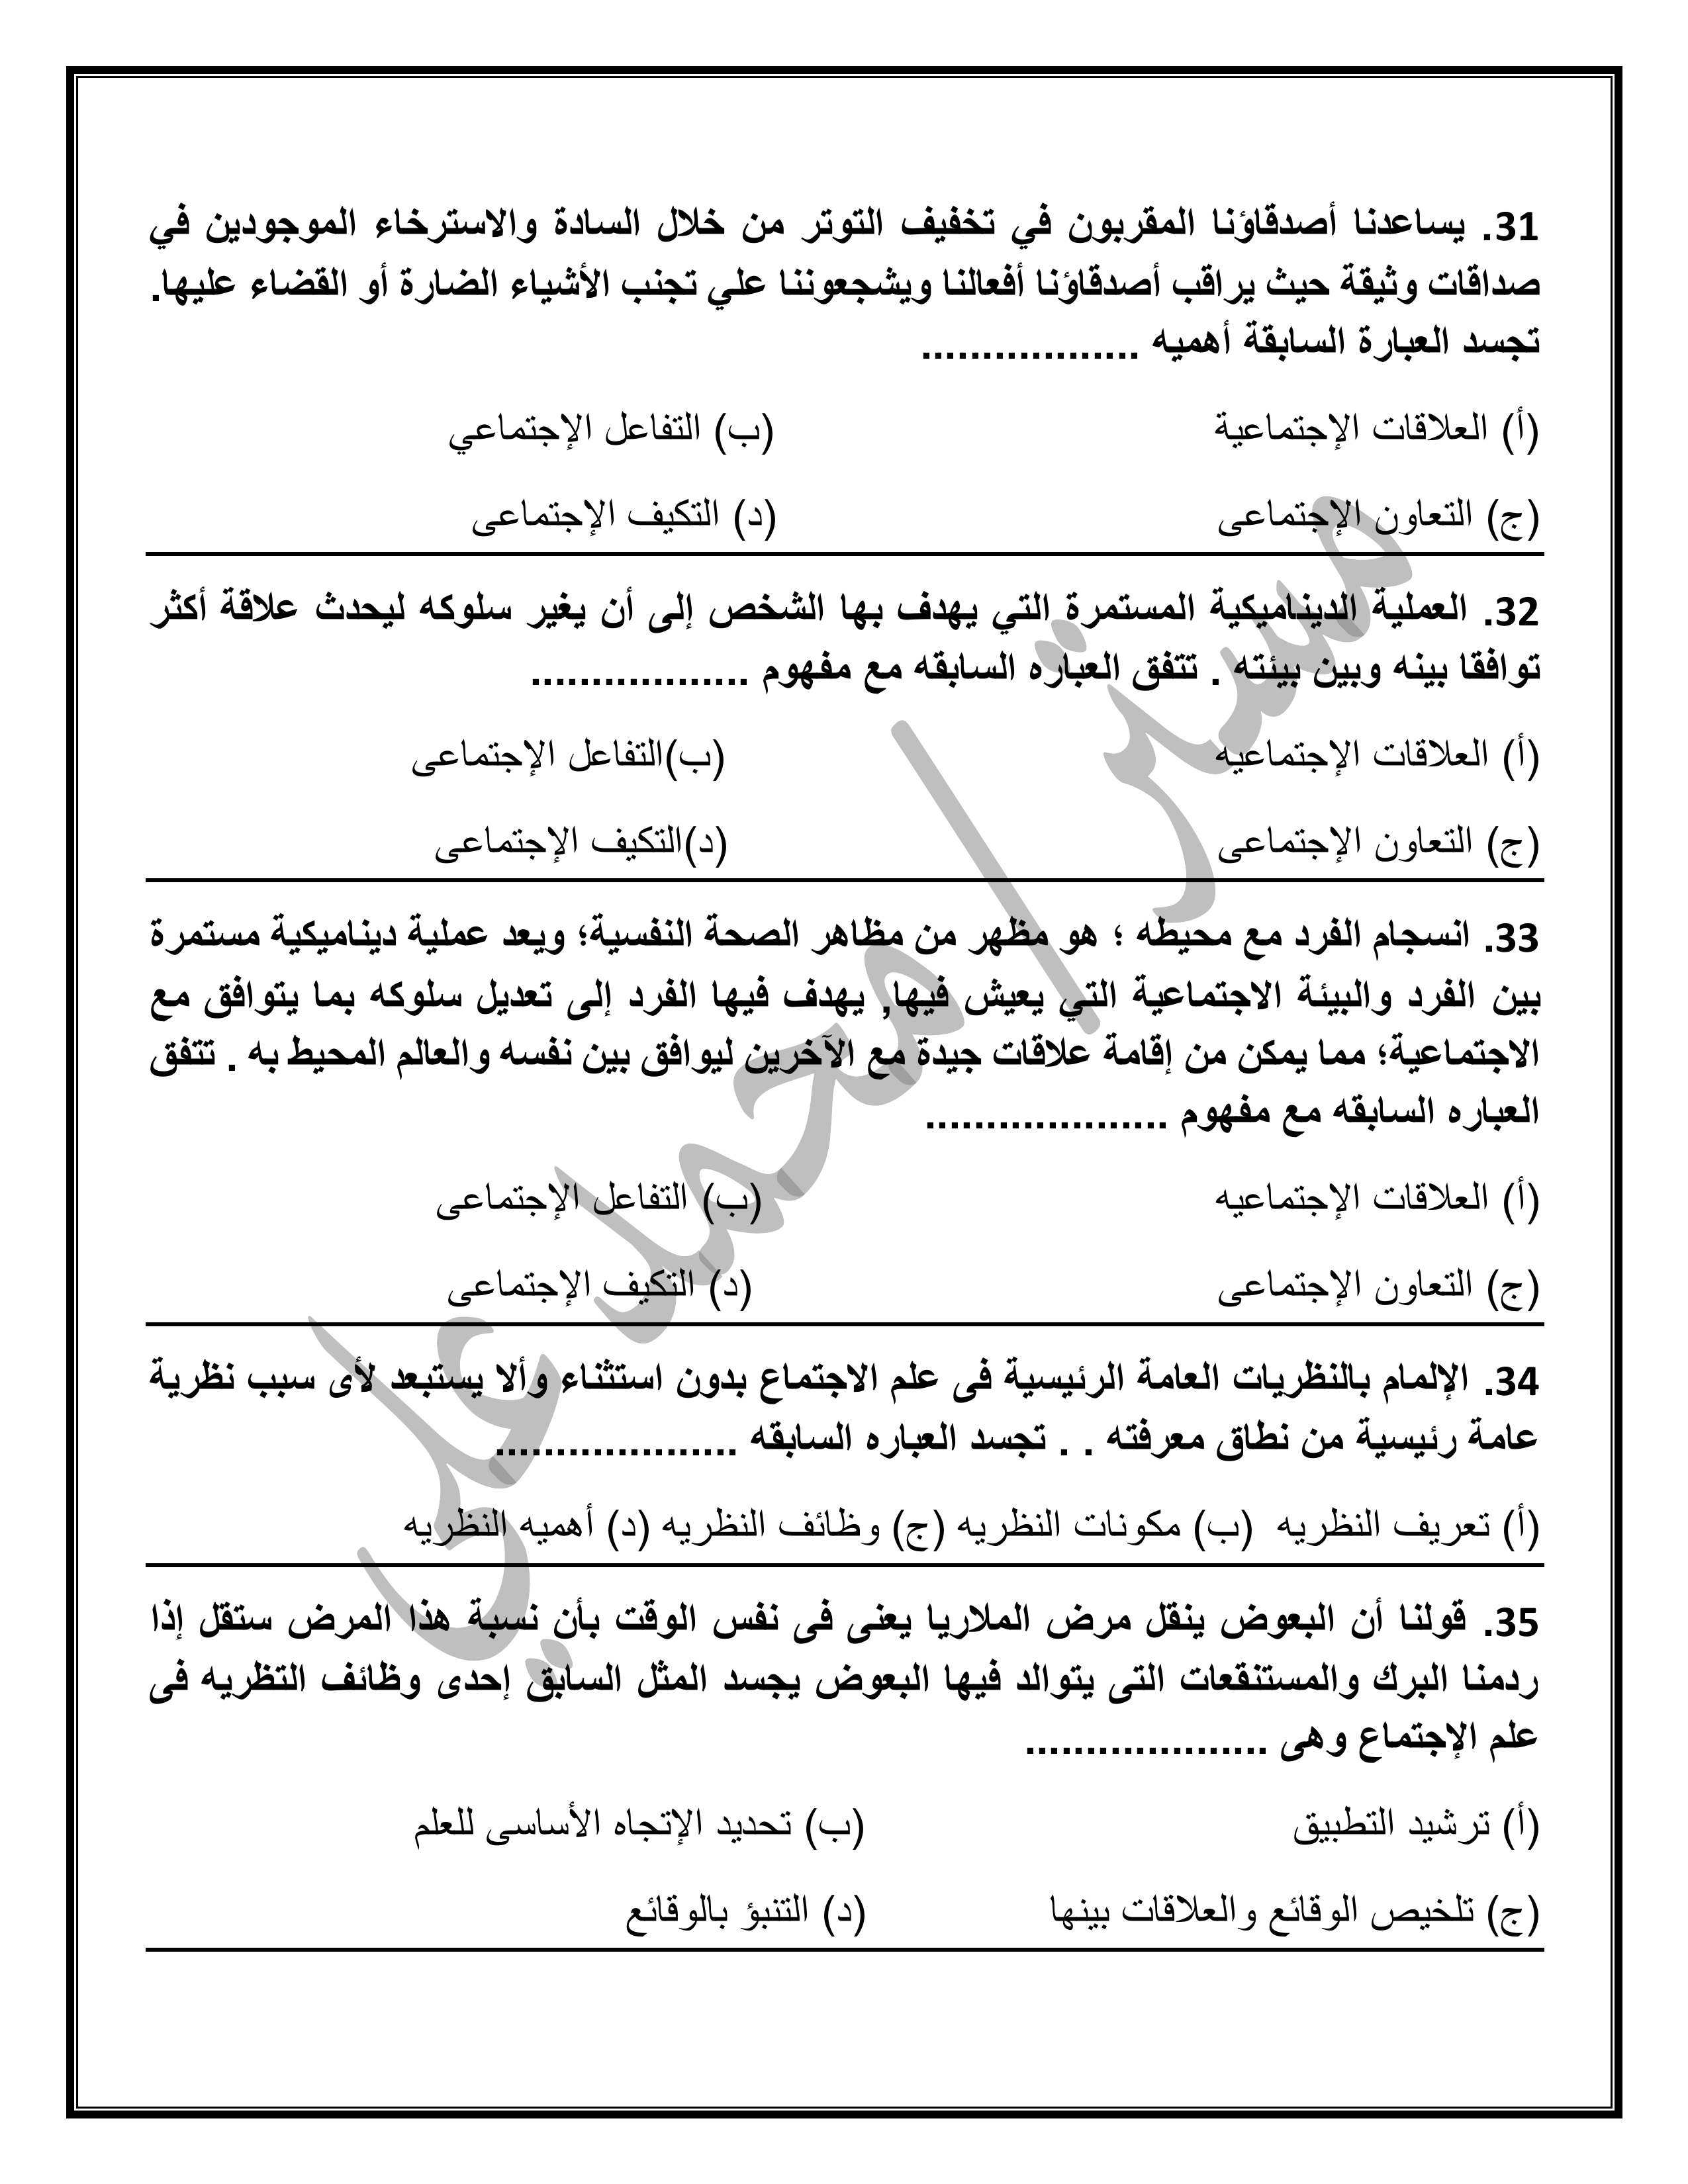 31. يساعدنا أصدقاؤنا المقربون في تخفيف التوتر من خلال السادة والاسترخاء الموجودين في
صداقات وثيقة حيث يراقب أصدقاؤنا أفعالنا ويشجعوننا علي تجنب الأشياء الضارة أو القضاء عليها.
تجسد العبارة السابقة أهميه ..................
(أ) العلاقات الإجتماعية (ب) التفاعل الإجتماعي
(ج) التعاون الإجتماعى (د) التكيف الإجتماعى
32. العملية الديناميكية المستمرة التي يهدف بها الشخص إلى أن يغير سلوكه ليحدث علاقة أكثر
توافقا بينه وبين بيئته . تتفق العباره السابقه مع مفهوم ..................
(أ) العلاقات الإجتماعيه (ب)التفاعل الإجتماعى
(ج) التعاون الإجتماعى (د)التكيف الإجتماعى
33. انسجام الفرد مع محيطه ؛ هو مظهر من مظاهر الصحة النفسية؛ ويعد عملية ديناميكية مستمرة
بين الفرد والبيئة الاجتماعية التي يعيش فيها, يهدف فيها الفرد إلى تعديل سلوكه بما يتوافق مع
الاجتماعية؛ مما يمكن من إقامة علاقات جيدة مع الآخرين ليوافق بين نفسه والعالم المحيط به . تتفق
العباره السابقه مع مفهوم ....................
(أ) العلاقات الإجتماعيه (ب) التفاعل الإجتماعى
(ج) التعاون الإجتماعى (د) التكيف الإجتماعى
34. الإلمام بالنظريات العامة الرئيسية فى علم الاجتماع بدون استثناء وألا يستبعد لأى سبب نظرية
عامة رئيسية من نطاق معرفته . . تجسد العباره السابقه ....................
(أ) تعريف النظريه (ب) مكونات النظريه (ج) وظائف النظريه (د) أهميه النظريه
35. قولنا أن البعوض ينقل مرض الملاريا يعنى فى نفس الوقت بأن نسبة هذا المرض ستقل إذا
ردمنا البرك والمستنقعات التى يتوالد فيها البعوض يجسد المثل السابق إحدى وظائف التظريه فى
علم الإجتماع وهى ....................
(أ) ترشيد التطبيق (ب) تحديد الإتجاه الأساسى للعلم
(ج) تلخيص الوقائع والعلاقات بينها (د) التنبؤ بالوقائع
مستر/ محمد علي